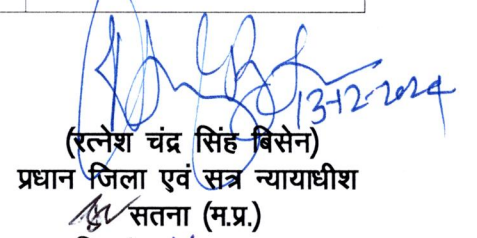 13-12-2024
(रत्नेश चंद्र सिंह बिसेन)
प्रधान जिला एवं सत्र न्यायाधीश
सतना (म.प्र.)